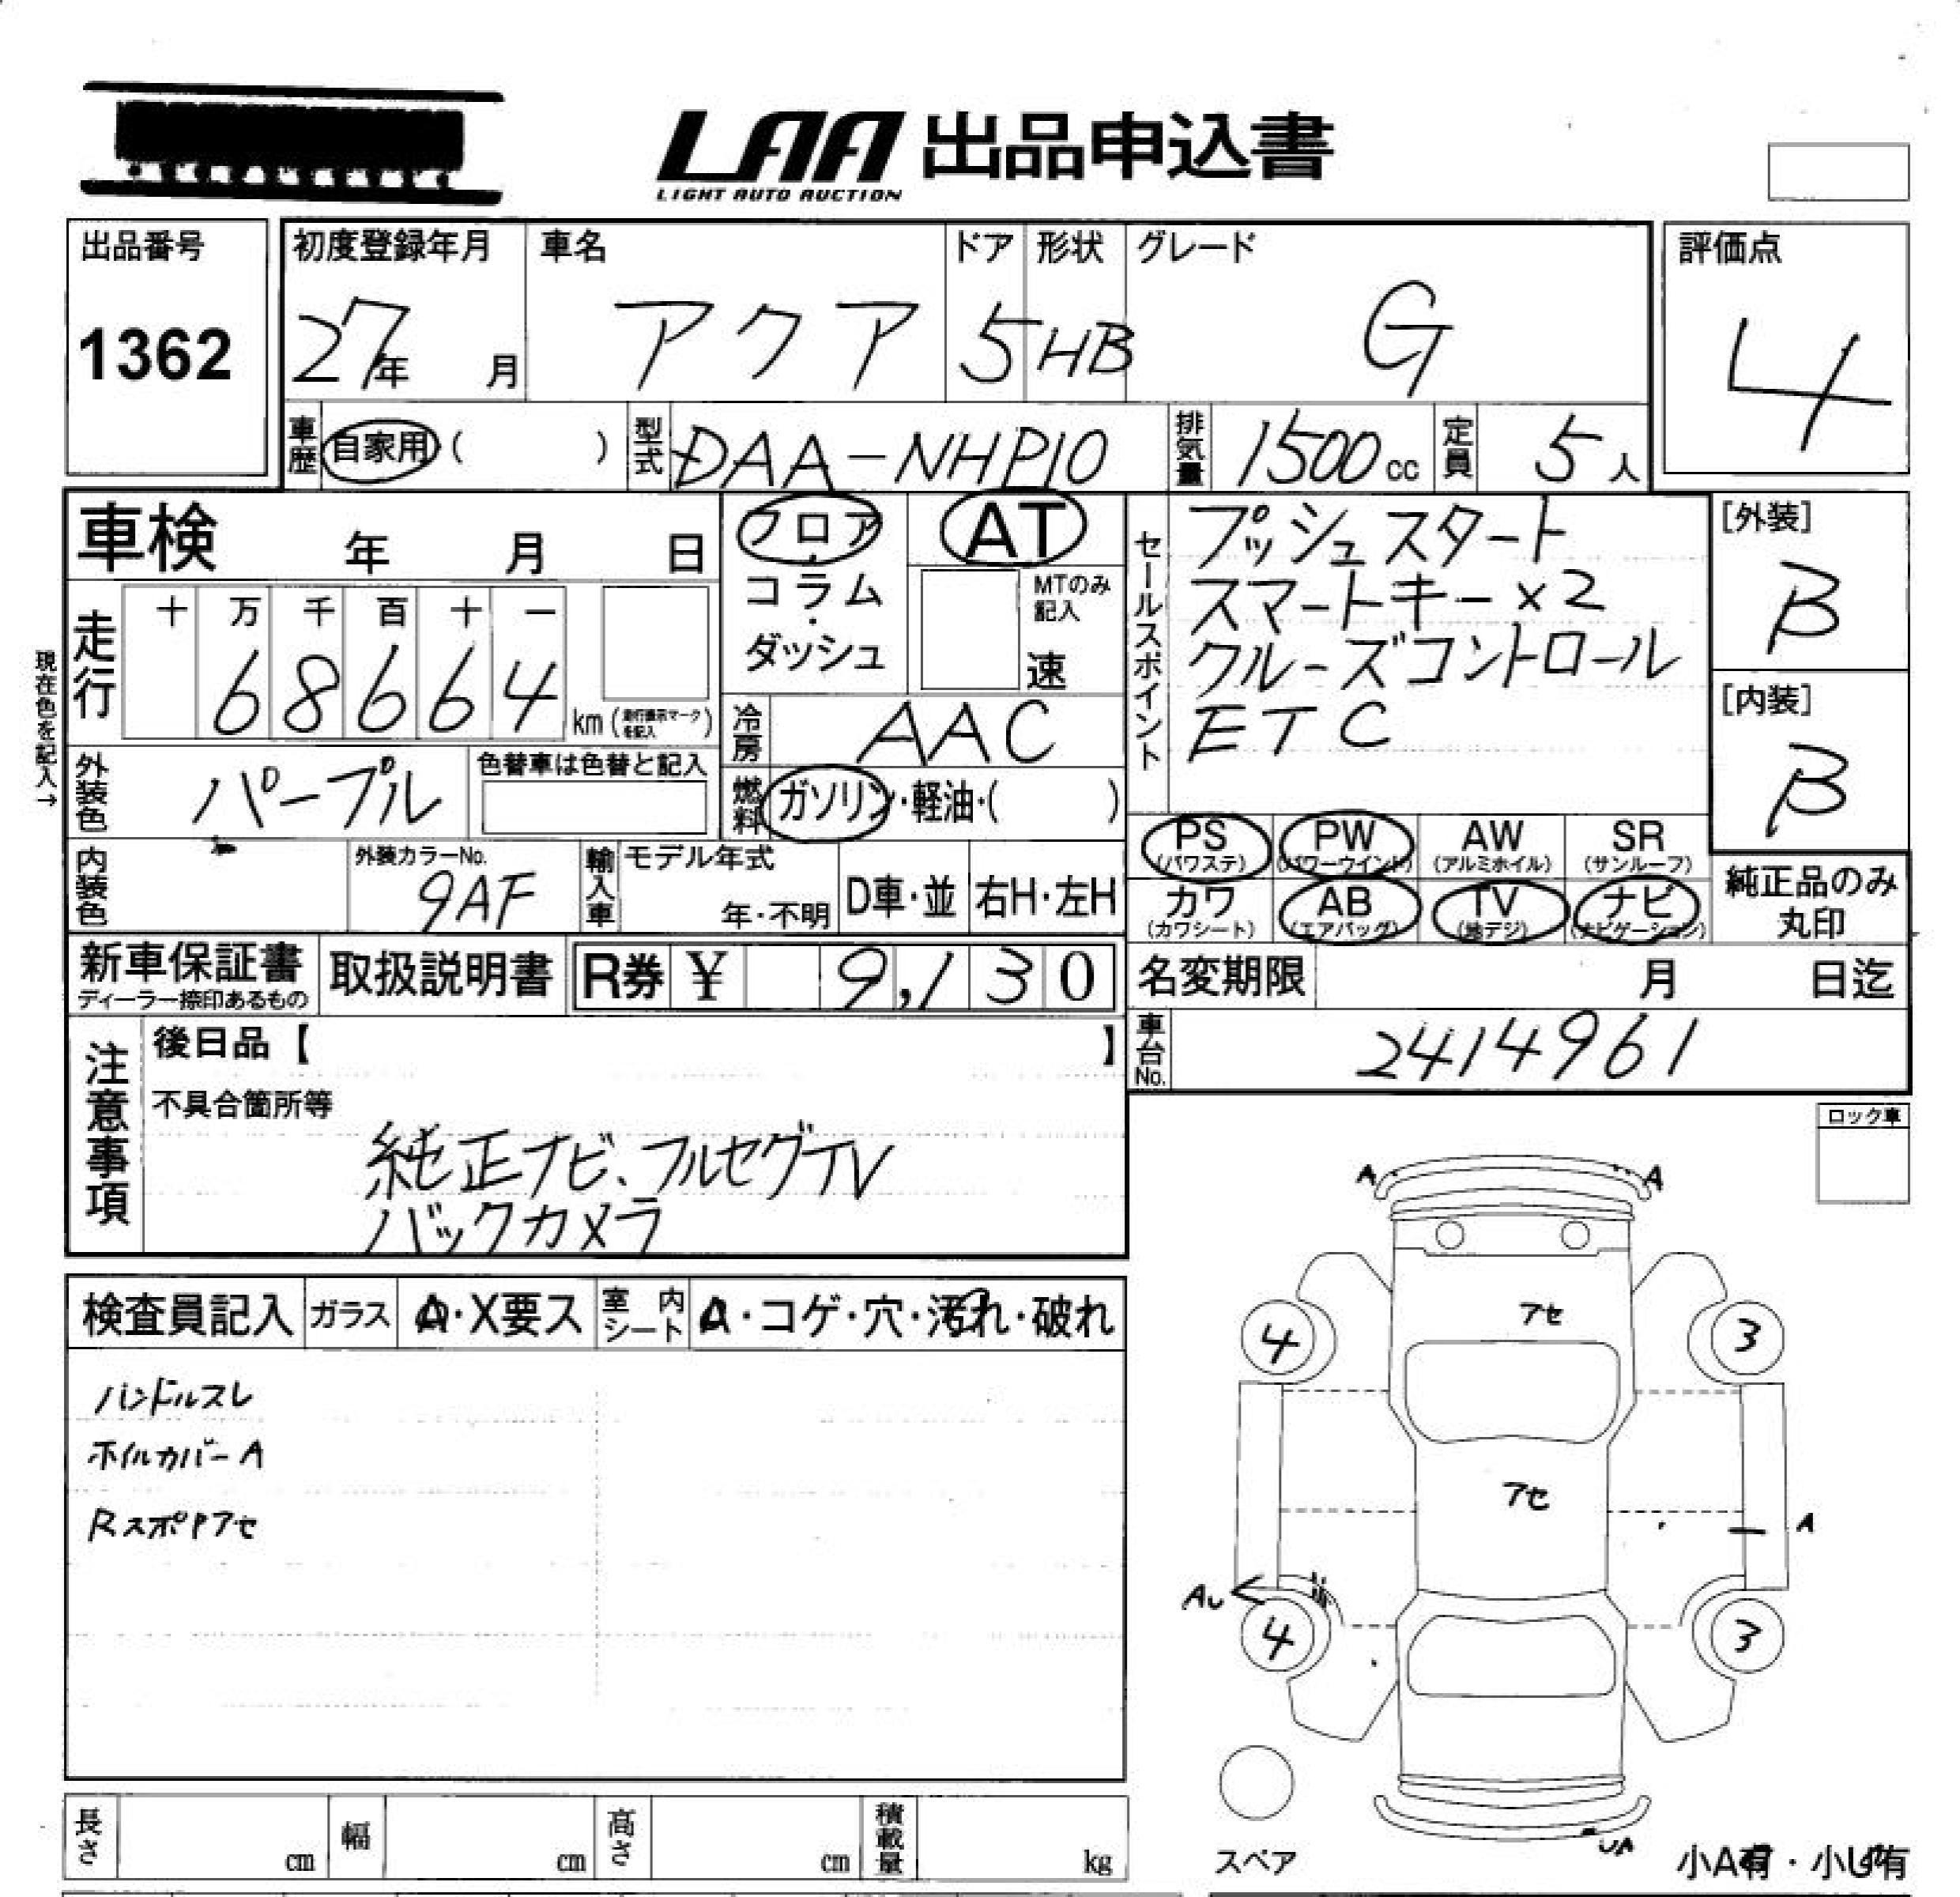 LAA 出品申込書
LIGHT AUTO AUCTION
出品番号
1362
初度登録年月
27年 月
車名
アクア
ドア
5
形状
HB
グレード
G
評価点
4
車歴 自家用 ( )
型式 DAA-NHP10
排気量 1500 cc
定員 5 人
車検 年 月 日
フロア・コラム・ダッシュ
AT
MTのみ記入
速
セールスポイント
プッシュスタート
スマートキー×2
クルーズコントロール
ETC
[外装]
B
[内装]
B
現在色を記入→
走行
十 万 千 百 十 一
6 8 6 6 4
km (走行表示マークを記入)
冷房 AAC
外装色 パープル
色替車は色替と記入
燃料 ガソリン・軽油・( )
内装色
外装カラーNo.
9AF
輸入車
モデル年式
年・不明
D車・並
右H・左H
PS (パワステ)
PW (パワーウインド)
AW (アルミホイル)
SR (サンルーフ)
カワ (カワシート)
AB (エアバッグ)
TV (地デジ)
ナビ (ナビゲーション)
純正品のみ
丸印
新車保証書
ディーラー捺印あるもの
取扱説明書
R券 ¥ 9,130
名変期限 月 日迄
車台No. 2414961
注意事項
後日品【 】
不具合箇所等
純正ナビ、フルセグTV
バックカメラ
ロック車
検査員記入
ガラス A・X要ス
室内シート A・コゲ・穴・汚れ・破れ
ハンドルスレ
ホイルカバーA
Rスポイアセ
A A
アセ
4 3
アセ
A
AU
4 3
UA
スペア
小A有・小U有
長さ cm
幅 cm
高さ cm
積載量 kg